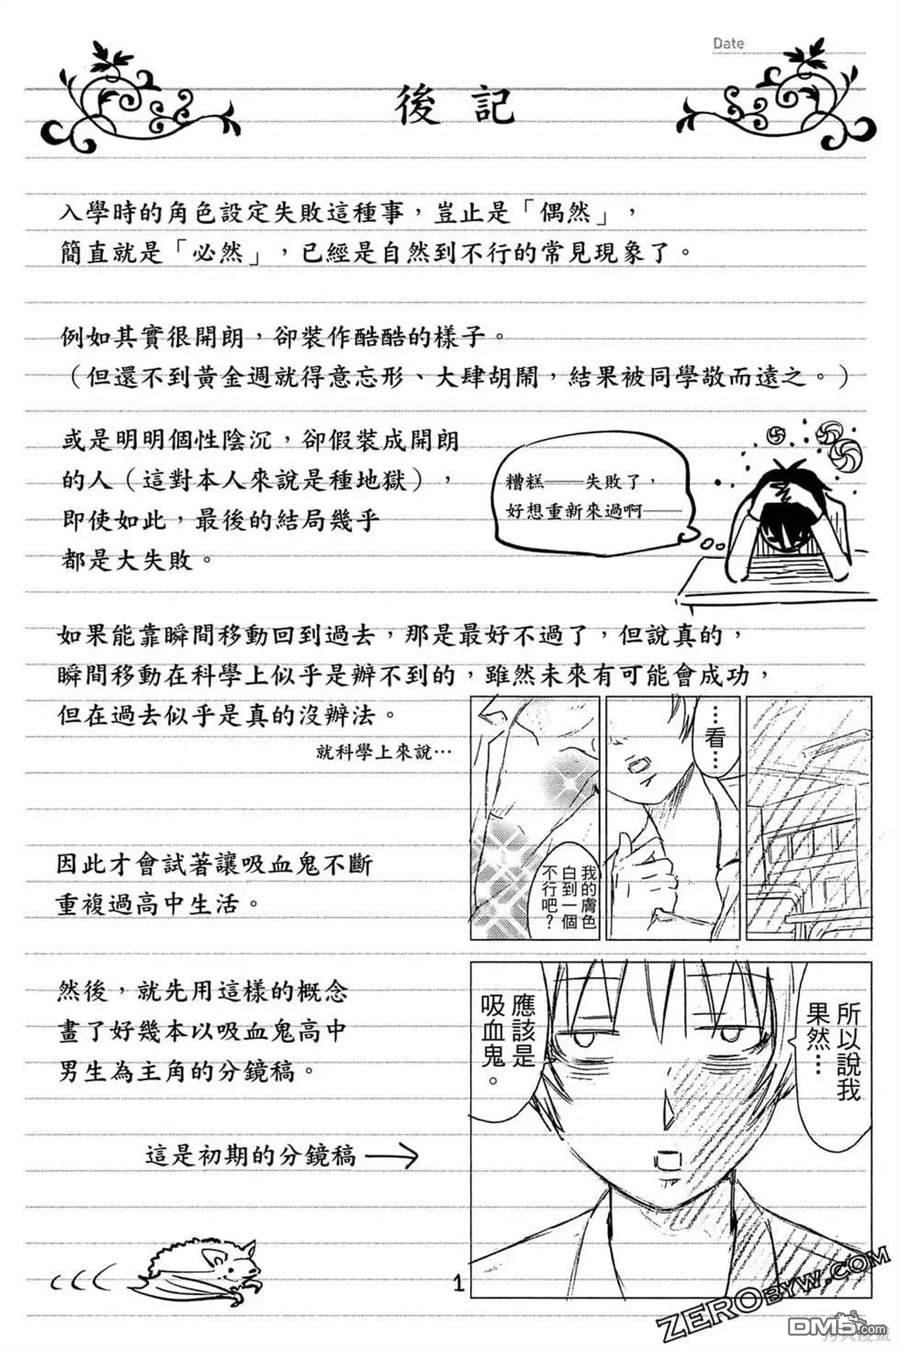 Date
後記
入學時的角色設定失敗這種事，豈止是「偶然」，
簡直就是「必然」，已經是自然到不行的常見現象了。
例如其實很開朗，卻裝作酷酷的樣子。
（但還不到黃金週就得意忘形、大肆胡鬧，結果被同學敬而遠之。）
或是明明個性陰沉，卻假裝成開朗
的人（這對本人來說是種地獄），
即使如此，最後的結局幾乎
都是大失敗。
糟糕──失敗了，
好想重新來過啊──
如果能靠瞬間移動回到過去，那是最好不過了，但說真的，
瞬間移動在科學上似乎是辦不到的，雖然未來有可能會成功，
但在過去似乎是真的沒辦法。
就科學上來說…
…看…
我的膚色
白到一個
不行吧？
因此才會試著讓吸血鬼不斷
重複過高中生活。
然後，就先用這樣的概念
畫了好幾本以吸血鬼高中
男生為主角的分鏡稿。
這是初期的分鏡稿
所以說我
果然…
應該是
吸血鬼。
1
ZEROBYW.COM
DM5.com